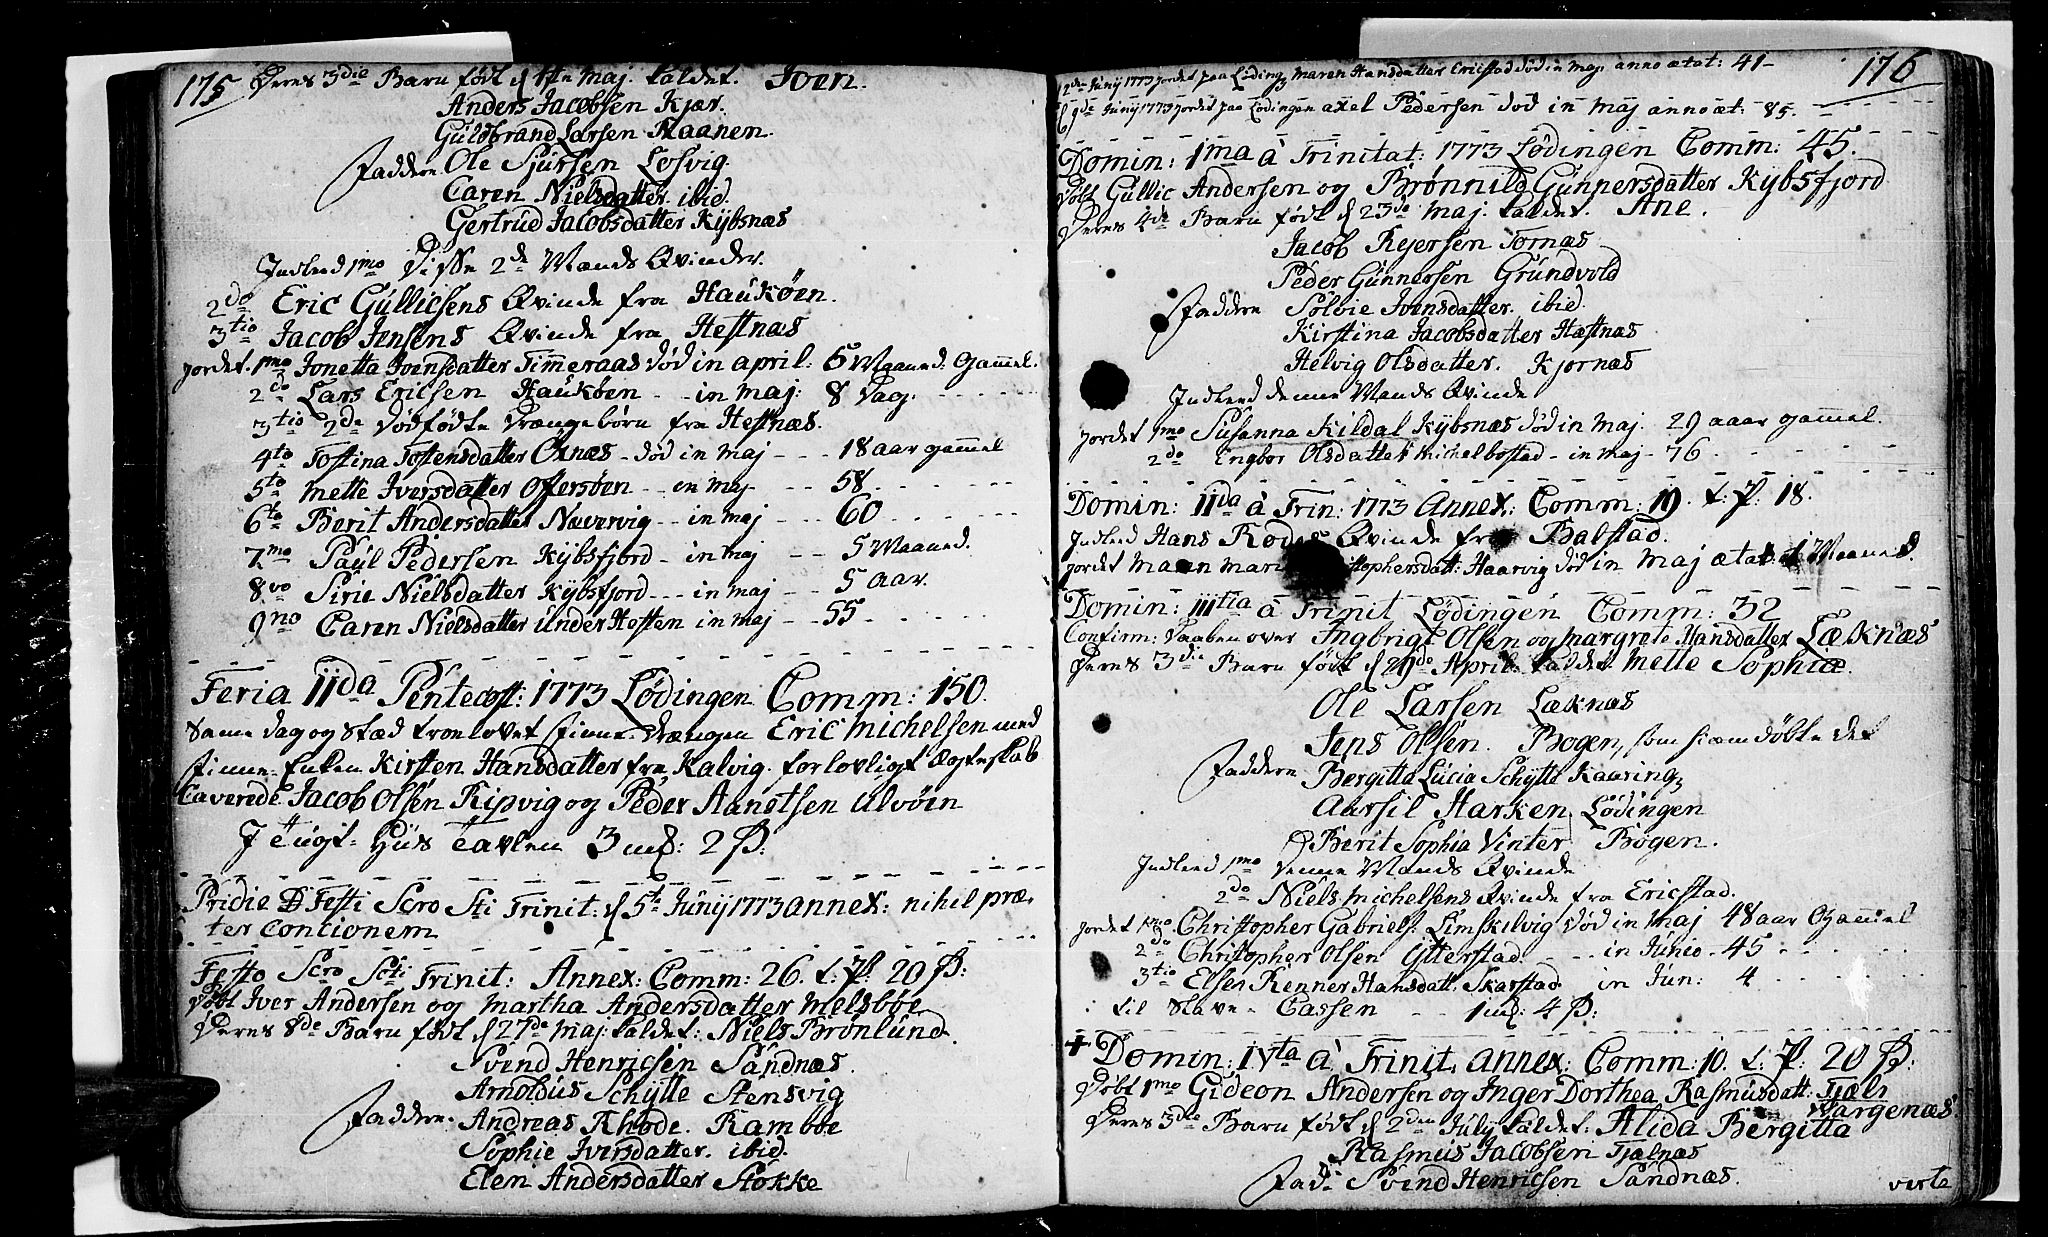 175
Deres 3die Barn født d 4te Maj. kaldet. Joen.
Anders Jacobsen Kjær.
Guldbrand Larsen Raanen.
Faddere Ole Sjursen Løsvig.
Caren Nielsdatter. ibid.
Gertrud Jacobsdatter Kybsnæs
Indleed 1mo Disse 2de Mands Qvinder.
2do Eric Gullicsens Qvinde fra Haukøen.
3tio Jacob Jensens Qvinde fra Hestnæs
jordet. 1mo Jonetta Joensdatter Timmeraas død in april: 5 Maaned: Gammel.
2do Lars Ericsen Haukøen - - in Maj: 8 Dag.
3tio 2de Dødfødte Drængebørn fra Hestnæs.
4to Tostina Tostensdatter Ornæs - død in maj - - - 18 aar gammel
5to Mette Iversdatter Offersøen - - in Maj - - - 58.
6to Berit Andersdatter Nævervig - - in maj - - - 60
7mo Paul Pedersen Kybsfjord - in maj - - 5 Maaned.
8vo Sirie Nielsdatter Kybsfjord - - - in maj - - 5 Aar.
9no Caren Nielsdatter under Hesten in maj - - 55
Feria IIda Pentecost: 1773 Lødingen Comm: 150.
Samme dag og stæd troelovet Finne-Drængen Eric Michelsen med
Finne-Enken Kirsten Hansdatter fra Kalvig. for lovligt Ægteskab
Caverede Jacob Olsen Ripvig og Peder Aanotsen Ulvøen
I Tugt-Huus Tavlen 3 mk: 2 β:
Pridie D Festi Scro Sti Trinit: d 5te Junij 1773 annex: nihil præ-
ter Contionem
Festo Scro Scti Trinit: Annex: Comm: 26. t: p: 20 β:
Døbt Iver Andersen og Martha Andersdatter Melsbøe
Deres 8de Barn født d 27de Maj: kaldet: Niels Brønlund.
Svend Henricsen Sandnæs.
Arnoldus Schytte Stensvig
Faddere. Andreas Rhode. Ramboe
Sophie Iversdatter. ibid.
Elen Andersdatter Stokke
176
12de Junij 1773 jordet paa Lødingen Maren Hansdatter Ericstad død in Maj. anno ætat: 41 -
d 9de Junij 1773 jordet paa Lødingen axel Pedersen død in Maj anno æt: 85.
Domin: 1ma à Trinitat: 1773 Lødingen Comm: 45.
Døbt Gullic Andersen og Brønnild Gunnersdatter Kybsfjord
Deres 4de Barn født d 23de Maj. kaldet. Ane.
Jacob Rejersen Tornæs
Peder Gunnersen Grundvold
Faddere Solvie Ivensdatter. ibid.
Kirstina Jacobsdatter Hæstnæs
Helvig Olsdatter. Kjørnæs
Indleed denne Mands Qvinde
jordet 1mo Susanna Kildal Kybsnæs død in Maj. 29 aaar gammel.
2do Engbor Olsdatter Michelbostad - in maj - 76
Domin: IIda à Trin: 1773 Annex: Comm: 19. t: p: 18.
Indleed Hans Rodes Qvinde fra Balstad.
jordet Maren Mari itophersdatt: Haarvig død in Maj ætat: Maaned.
Domin: IIItia à Trinit Lødingen Comm: 32
Confirm: Daaben over Ingbrigt Olsen og Margrete Hansdatter Læknæs
Deres 3die Barn født d 29de April: kaldet Mette Sophia.
Ole Larsen Læknæs
Jens Olsen. Bogen, som hiemdøbte det
Faddere Bergitta Lucia Schytte Kaaring
Aarsil Harken Lødingen
Berit Sophia Vinter Bogen.
Indleed 1mo denne Mands Qvinde
2do Niels Michelsens Qvinde fra Ericstad.
jordet 1mo Christopher Gabriels: Simskilvig død in Maj 48 aar Gammel
2do Christopher Olsen Ytterstad - - - in Junio - 45
3tio Elsen Renner Hansdatt. Skarstad in Jun: 4
til Slave-Cassen - - 1 mk: 4 β:
+ Domin: IVta à Trinit. Annex: Comm: 10. t: p: 20 β:
Døbt 1mo Gideon Andersen og Inger Dorthea Rasmusdatt: Fjæls
Vargenæs
Deres 3die Barn født d 2den July kaldet: Alida Bergitta
Rasmus Jacobsen Fjælnæs
Fad: Svend Henricsen Sandnæs.
verte